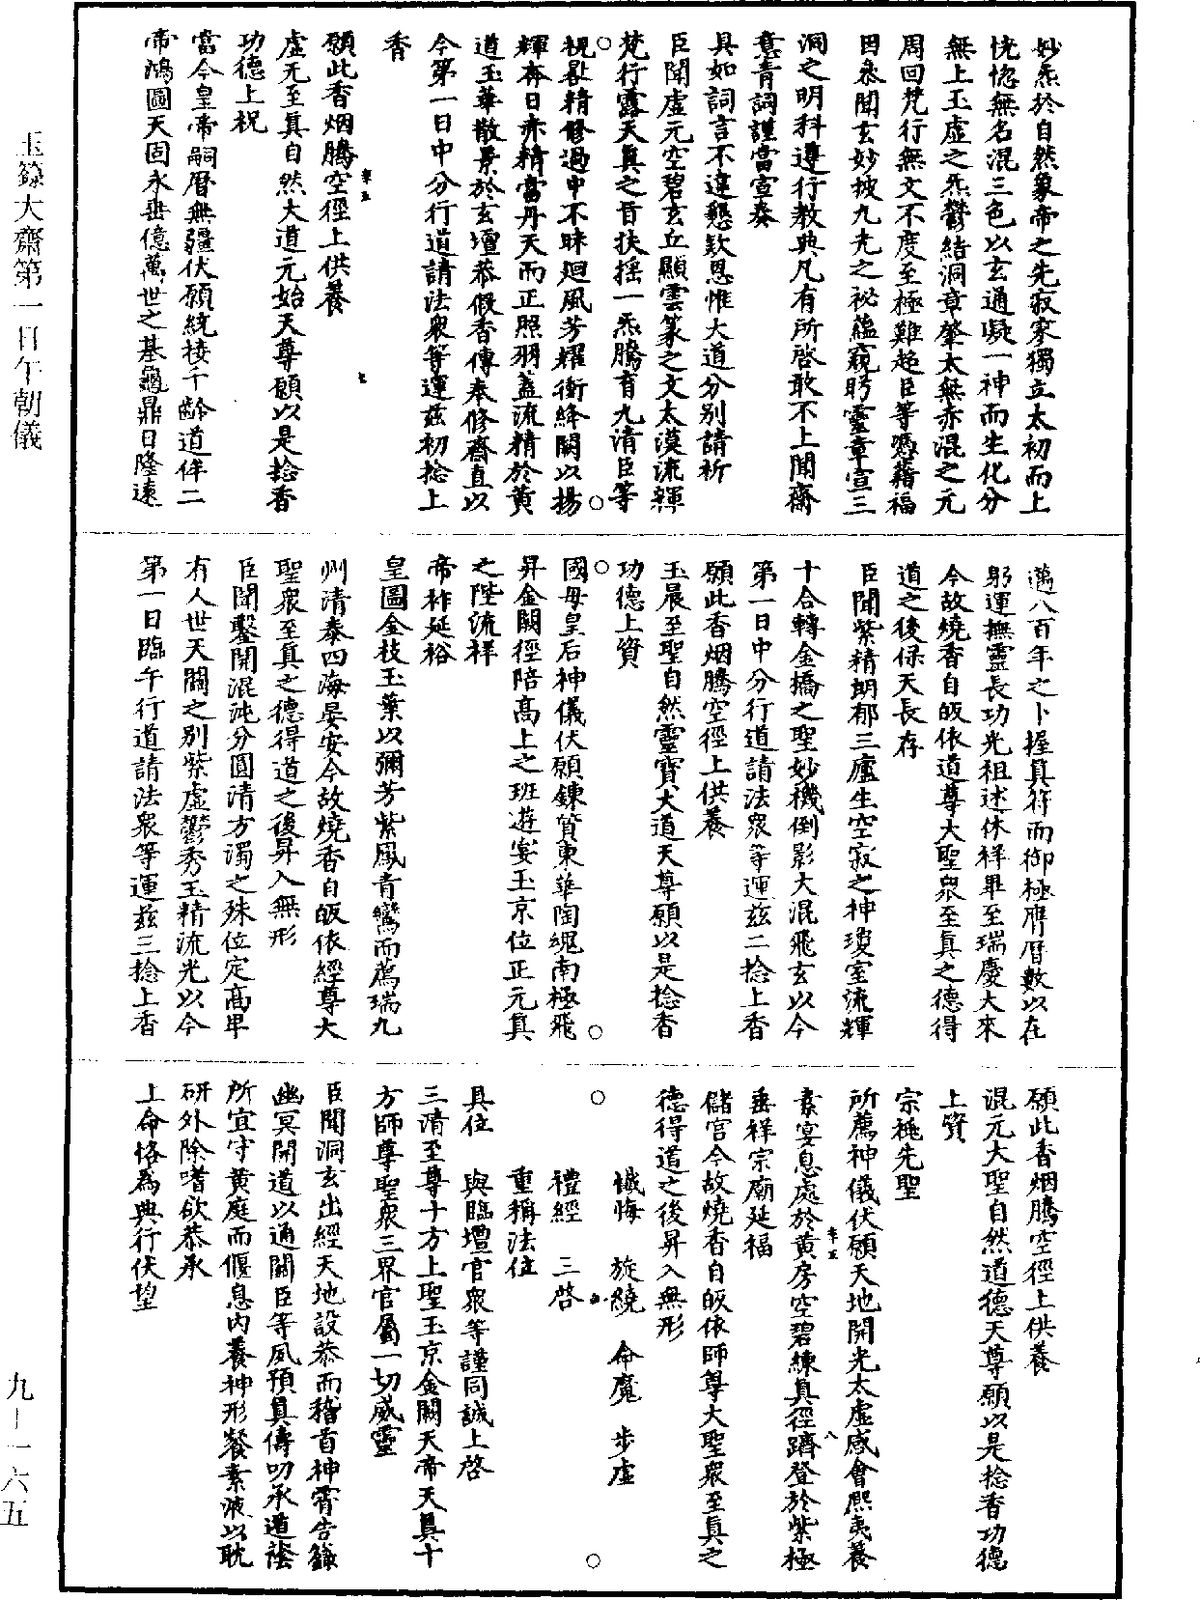 妙炁於自然象帝之先寂寥獨立太初而上
恍惚無名混三色以玄通凝一神而生化分
無上玉虛之炁鬱結洞章肇太無赤混之元
周回梵行無文不度至極難超臣等憑藉福
因泰聞玄妙披九光之祕蘊窺眄靈章宣三
洞之明科遵行教典凡有所啓敢不上聞齋
意青詞謹當宣奏
具如詞言不違懇欵恩惟大道分別請祈
臣聞虛元空碧玄丘顯雲篆之文太漠流輝
梵行露天真之旨扶搖一炁騰育九清臣等
視晷精修過中不昧迴風芳耀衝絳闕以揚
輝奔日赤精當丹天而正照羽蓋流精於黃
道玉華散景於玄壇恭假香傳奉修齋直以
今第一日中分行道請法衆等運茲初捻上
香
願此香烟騰空徑上供養
虛无至真自然大道元始天尊願以是捻香
功德上祝
當今皇帝嗣曆無疆伏願統接千齡道伴二
帝鴻圖天固永垂億萬世之基龜鼎日隆遠
邁八百年之卜握真符而御極膺曆數以在
躬運撫靈長功光祖述休祥畢至瑞慶大來
今故燒香自皈依道尊大聖衆至真之德得
道之後保天長存
臣聞紫精朗郁三廬生空寂之神瓊室流輝
十合轉金撟之聖妙機倒影大混飛玄以今
第一日中分行道請法衆等運茲二捻上香
願此香烟騰空徑上供養
玉晨至聖自然靈寶大道天尊願以是捻香
功德上資
國母皇后神儀伏願鍊質東華陶魂南極飛
昇金闕徑陪高上之班遊宴玉京位正元真
之陛流祥
帝祚延裕
皇圖金枝玉葉以彌芳紫鳳青鸞而薦瑞九
州清泰四海晏安今故燒香自皈依經尊大
聖衆至真之德得道之後昇入無形
臣聞鑿開混沌分圓清方濁之殊位定高卑
有人世天關之別紫虛鬱秀玉精流光以今
第一日臨午行道請法衆等運茲三捻上香
願此香烟騰空徑上供養
混元大聖自然道德天尊願以是捻香功德
上資
宗極先聖
所薦神儀伏願天地開光太虛感會熙夷養
素宴息處於黃房空碧練真徑躋登於紫極
垂祥宗廟延福
儲宮今故燒香自皈依師尊大聖衆至真之
德得道之後昇入無形
懺悔　旋繞　命魔　步虛
禮經　三啓
重稱法位
具位　與臨壇官衆等謹同誠上啓
三清至尊十方上聖玉京金闕天帝天真十
方師尊聖衆三界官屬一切威靈
臣聞洞玄出經天地設恭而稽首神霄告籙
幽冥開道以通關臣等夙預真儔叨承道蔭
所宜守黃庭而偃息內養神形餐素液以耽
研外除嗜欲恭承
上命恪為典行伏望
玉籙大齋第一日午朝儀
九－一六五